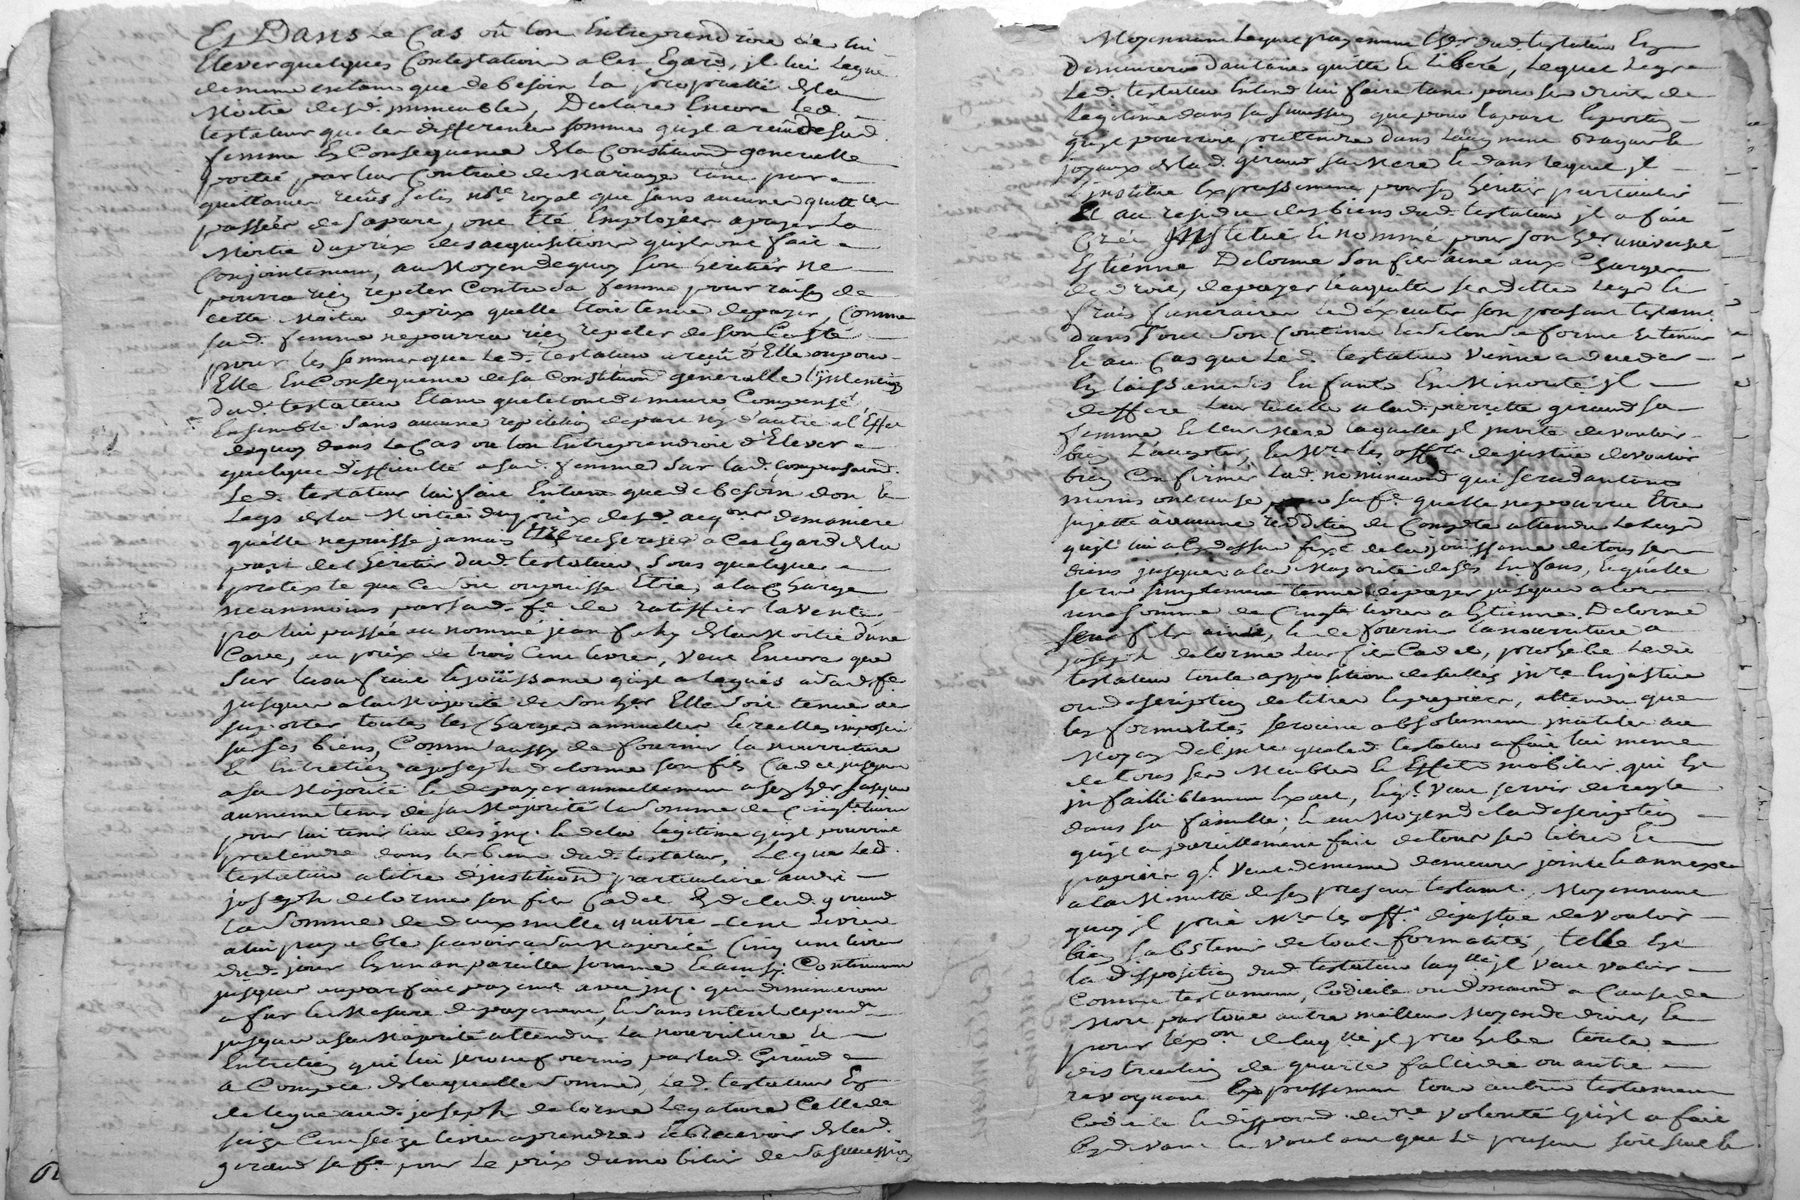 Et Dans le Cas où lon Entreprendroit de lui
Elever quelques Contestations a cet Egard, jl lui Legue
de meme entant que de besoin la proprieté de la
Moitié desd. jmmeubles, Declare Encore led.
testateur que les differentes sommes quil a reçu de sad.
femme En Consequence de la Constitution generalle
portée par leur Contrat de Mariage tant par
quittances reçues notre royal que sans aucunes quittces
passées de sa part, ont Eté Employées a payer La
Moitié du prix des acquisitions quils ont fait
Conjointement, au Moyen de quoy son heritier ne
pourra rien repeter Contre sa femme pour raison de
cette Moitié de prix quelle Etoit tenue de payer, Comme
sad. femme ne pourra rien repeter de son Costé
pour les sommes que led. testateur a reçu d'Elle ou pour
Elle En Consequence de sa Constitution generalle l'jntention
dud. testateur Etant que le tout demeure Compensé
Ensemble sans aucune repetition de part ny d'autre a l'Effet
de quoy dans le Cas ou lon Entreprendroit d'Elever
quelque difficulté a sad. femme sur lad. compensation
Led. testateur lui fait Entant que de besoin don Et
Legs de la Moitié du prix desd. acqons de maniere
quelle ne puisse jamais Etre recherchée a cet Egard de la
part de l'heritier dud. testateur, sous quelque
pretexte que Ce soit ou puisse Etre, a la Charge
neanmoins par sad. fe de ratiffier la vente
par lui passée au nommé jean de la Moitié d'une
Cave, au prix de trois Cent livres, Veut Encore que
sur lusufruit Et jouissance quil a legués a sad. fe
jusques a la Majorité de son her Elle soit tenue de
suporter toutes les Charges annuelles Et reelles imposées
sur ses biens, Comme aussy de fournir la nourriture
Et Entretien a joseph delorme son fils Cadet jusques
a sa Majorité Et de payer annuellement a son her jusques
au meme tems de sa Majorité la somme de Cinqte livres
pour lui tenir lieu des Et de la legitime quil pourroit
pretendre dans les biens dud. testateur, Legue Led.
testateur a titre d'jnstitution particuliere audit
joseph delorme son fils Cadet Et de lad. giraud
la somme de deux mille quatre Cent Livres
a lui payable sçavoir a sa Majorité Cinq cent livres
dud. jour En un an pareille somme Et ainsy Continuer
jusques au parfait payemt avec qui diminueront
a fur Et Mesure de payement, Et sans interet
jusques a sa Majorité attendu La nourriture Et
Entretien qui lui seront fournis par lad. Giraud
a Compte de laquelle somme, Led. testateur En
delegue aud. joseph delorme Legataire Celle de
seize Cent seize livres a prendre Et recevoir de lad.
giraud sa fe pour Le prix du mobilier de sa succession
Moyennant Lequel payement l'her dud. testateur En
Demeurera d'autant quitte Et Liberé, Lequel Legs
Led. testateur Entend lui faire tant pour ses droits de
Legitime dans sa succession que pour la part Et portion
quil pourroit pretendre dans L'augment Et bagues Et
joyaux de lad. giraud sa Mere Et dans lequel jl
L'jnstitue Expressement pour son heritier particulier
Et au residu des biens dud. testateur jl a fait
Créé jnstitué Et nommé pour son her universel
Estienne Delorme son fils ainé aux Charges
de droit, de payer Et aquitter ses dettes Legs Et
frais funeraires Et d'éxécuter son present testamt
dans tout son Contenu Et selon sa forme Et teneur
Et au Cas que Led. testateur vienne a deceder
En laissant ses Enfants En Minorité, jl
deffere Leur tutelle a lad. pierrette giraud sa
femme Et leur Mere laquelle jl jnvite de vouloir
bien L'accepter, Et Mrs les offrs de justice de vouloir
bien Confirmer lad. nomination qui sera d'autant
moins onereuse pour sa fe quelle ne pourra Etre
sujette a aucune reddition de Compte attendu Le Legs
quil lui a Cy dessus fixé de la jouissance de tous ses
biens jusques a la Majorité de ses Enfans, laquelle
sera simplement tenue de payer jusques alors
une somme de Cinqte livres a Estienne Delorme
leur fils ainé, Et de fournir la nourriture a
joseph delorme leur fils Cadet, prohibe Ledit
testateur toute apposition de scellés, jnvre En justice
ou description de titres Et papiers, attendu que
les formalités seroient absolument jnutiles au
Moyen de l'jnvre que led. testateur a fait lui meme
de tous ses Meubles Et Effets mobiliers qui Est
jnfailliblement Exact, Et quil Veut servir de regle
dans sa famille; Et au Moyen de la description
quil a pareillement fait de tous ses titres Et
papiers ql Veut de meme demeurer jointe Et annexée
a la Minutte de son present testamt. Moyennant
quoy jl prie Mrs les offrs de justice de vouloir
bien s'abstenir de toute formalités, telle Est
la disposition dud. testateur laqlle jl Veut valoir
Comme testament, Codicile ou donnaon a Cause de
Mort par tout autre meilleur Moyen de droit, Et
pour l'exon de laqlle jl prohibe toute
distraction de quarte falcidie ou autre
revoquant Expressement tous autres testamens
Codicile Et disposion de dre volonté quil a fait
Cy devant Et Voulant que Le present soit seul